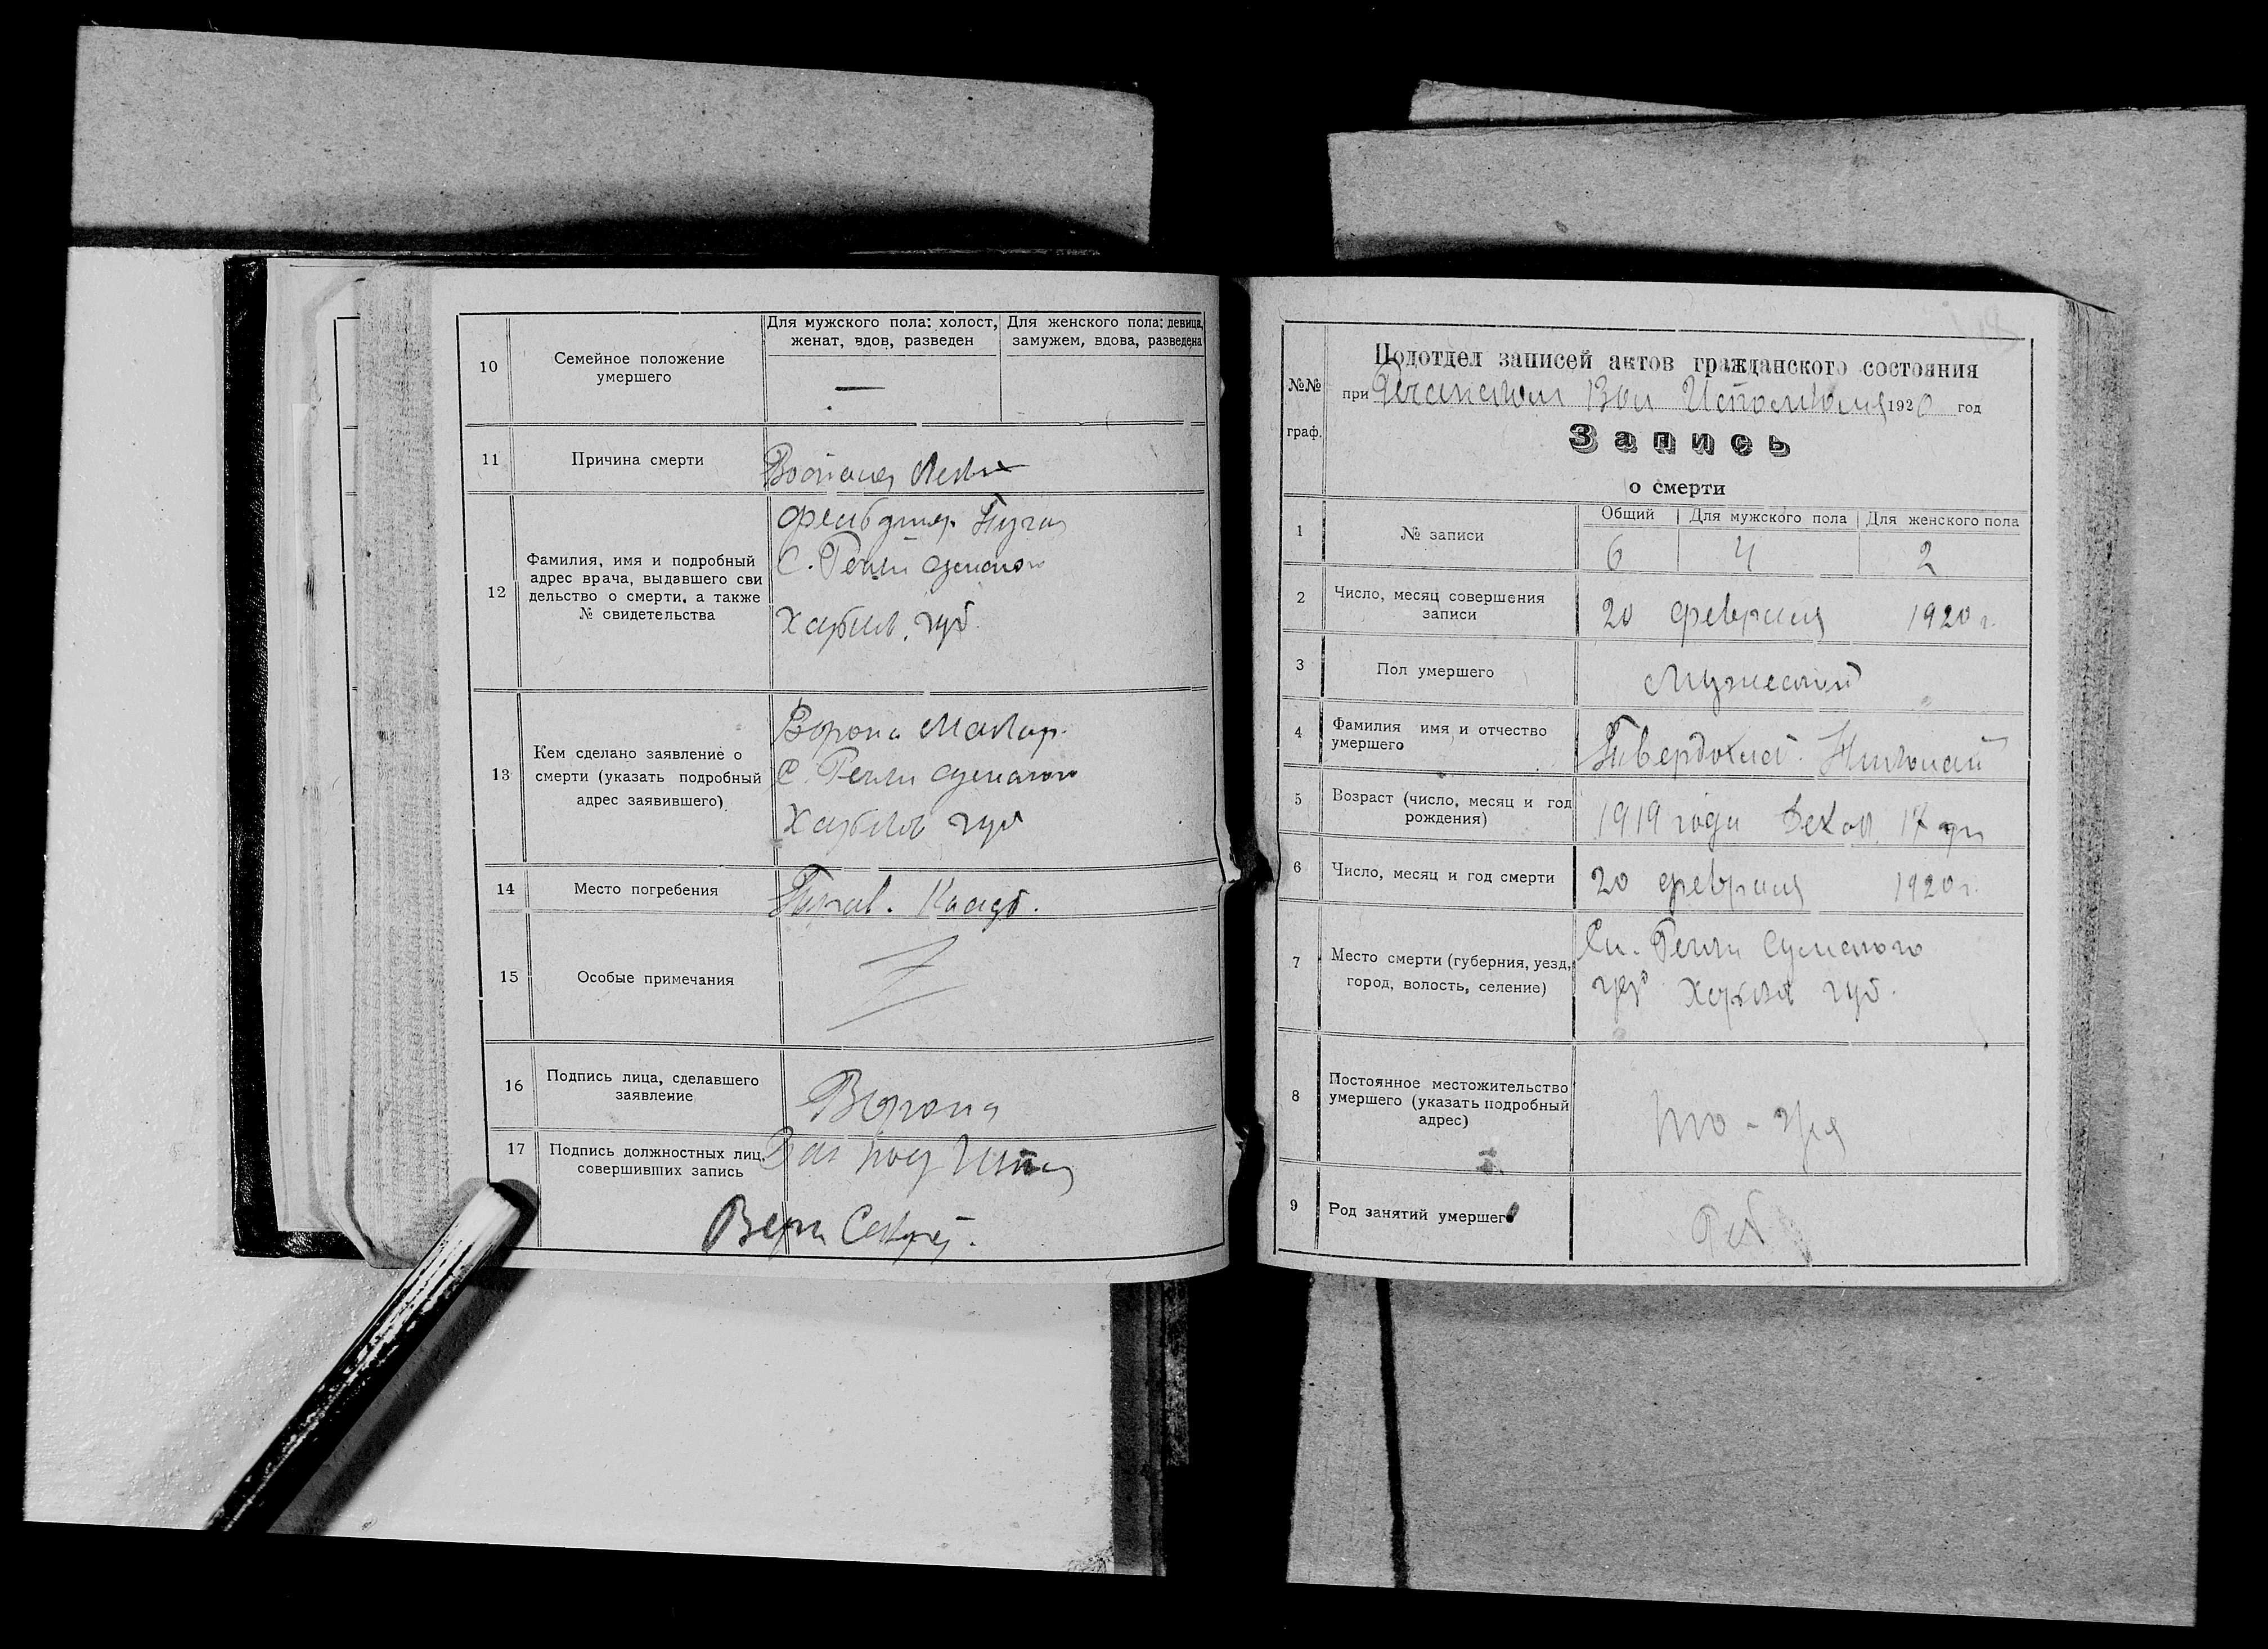 10
Семейное положение
умершего
Для мужского пола: холост,
женат, вдов, разведен
Для женского пола: девица,
замужем, вдова, разведена
—
11
Причина смерти
12
Фамилия, имя и подробный
адрес врача, выдавшего сви
дельство о смерти, а также
№ свидетельства
С. Речки Сумского
губ.
13
Кем сделано заявление о
смерти (указать подробный
адрес заявившего)
Ворона Макар.
С. Речки Сумского
губ
14
Место погребения
Прав. Кладб.
15
Особые примечания
16
Подпись лица, сделавшего
заявление
Ворона
17
Подпись должностных лиц,
совершивших запись
№№
граф.
Подотдел записей актов гражданского состояния
при Речанском Вол 1920 год
Запись
о смерти
1
№ записи
Общий
Для мужского пола
Для женского пола
6
4
2
2
Число, месяц совершения
записи
20 февраля 1920 г.
3
Пол умершего
Мужеский
4
Фамилия имя и отчество
умершего
Твердохлеб. Николай
5
Возраст (число, месяц и год
рождения)
1919 года Декаб. 17 дн
6
Число, месяц и год смерти
20 февраля 1920 г.
7
Место смерти (губерния, уезд,
город, волость, селение)
Сл. Речки Сумского
губ.
8
Постоянное местожительство
умершего (указать подробный
адрес)
9
Род занятий умершего